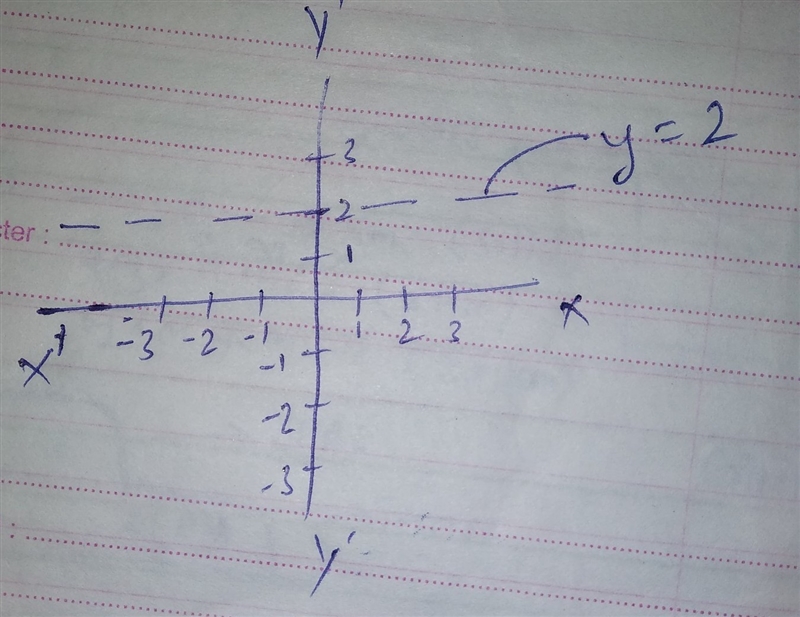 Y'
3
y = 2
2
ster :
1
-3 -2 -1 1 2 3
X' X
-1
-2
-3
Y'